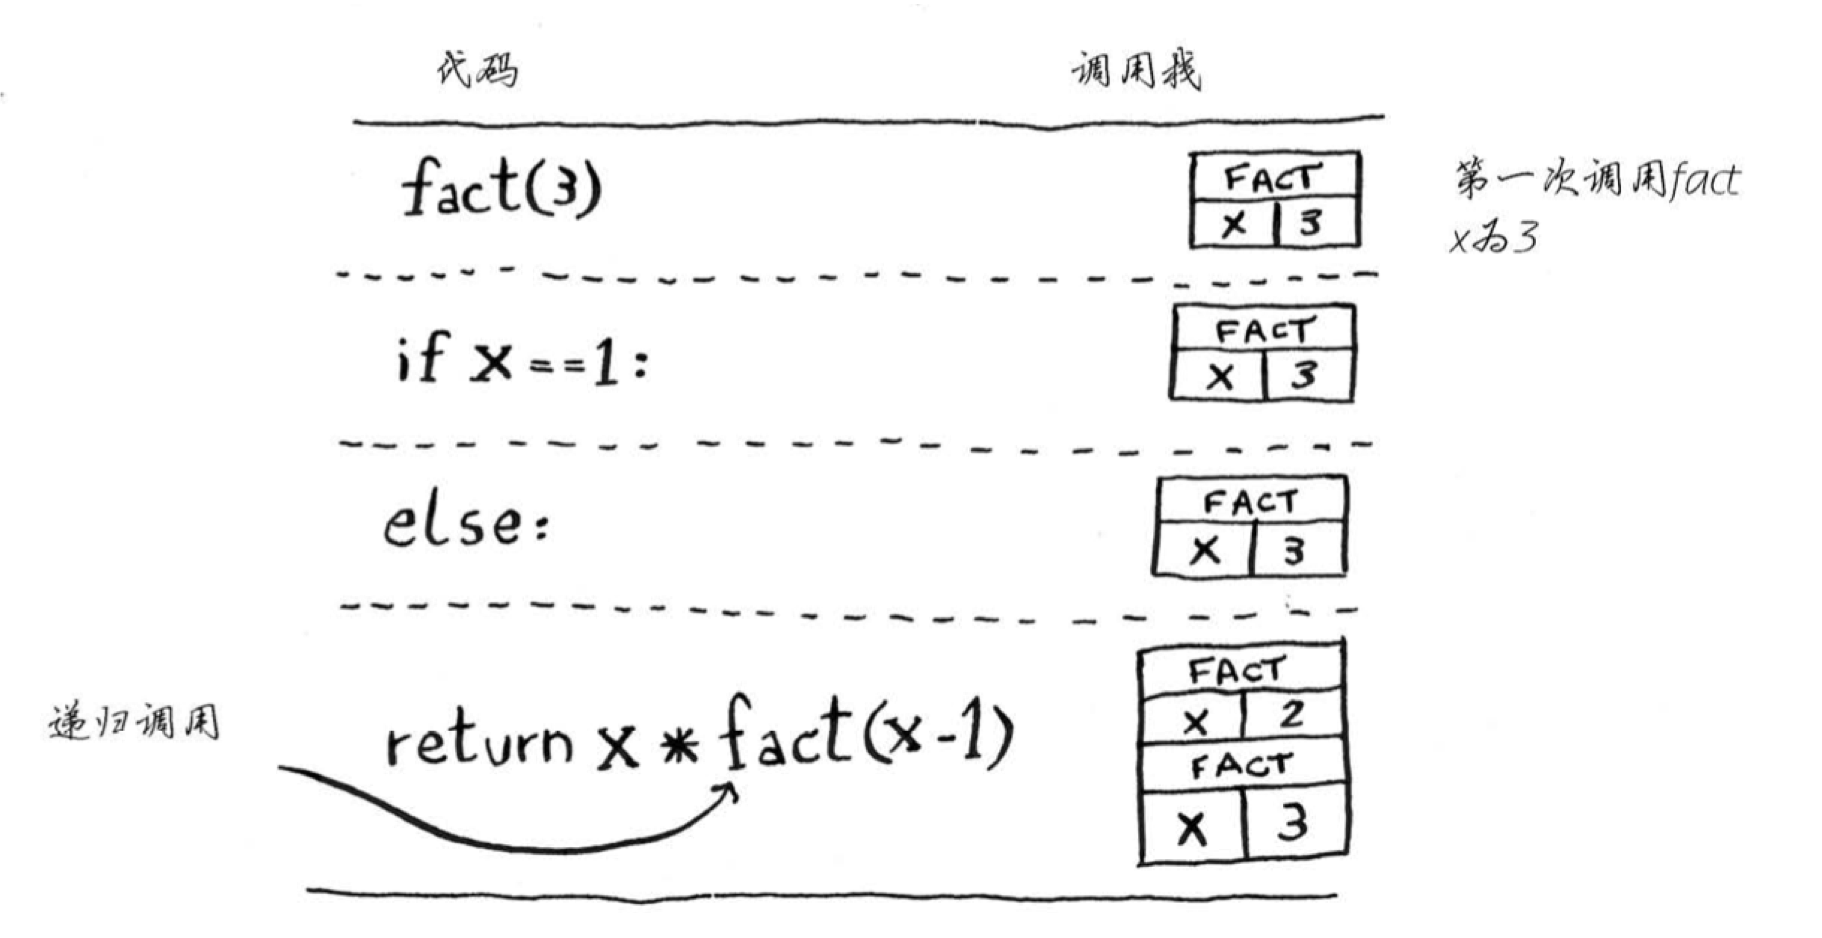 代码
调用栈
fact(3)
FACT
X 3
第一次调用fact
x为3
if x==1:
FACT
X 3
else:
FACT
X 3
递归调用
return x * fact(x-1)
FACT
X 2
FACT
X 3